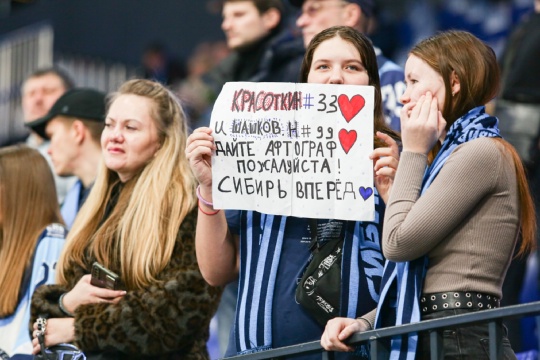 КРАСОТКИН #33
И ШАШКОВ.Н #99
ДАЙТЕ АФТОГРАФ
ПОЖАЛУЙСТА!
СИБИРЬ ВПЕРЁД